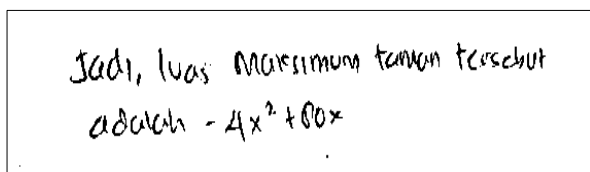 Jadi, luas Maksimum taman tersebut
adalah - 4x² + 80x